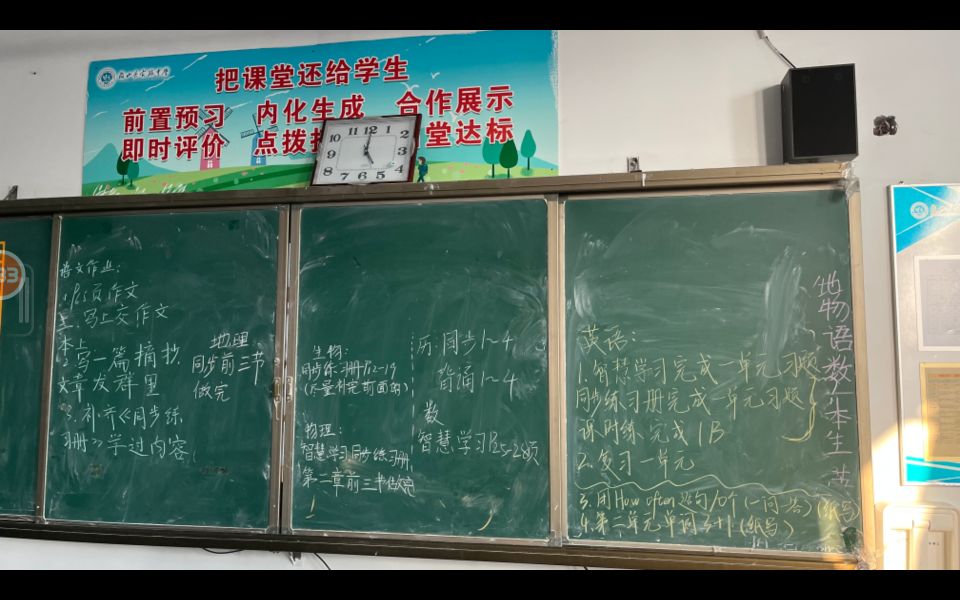 把课堂还给学生
前置预习 内化生成 合作展示
即时评价 点拨 堂达标
11 12 1
10 2
9 3
8 4
7 6 5
语文作业:
作文
写上交作文
本上
2.写一篇摘抄
文章发群里
3.补齐《同步练
习册》学过内容
地理
同步前三节
做完
生物:
同步练习册P12-19
(尽量补完前面的)
物理:
智慧学习同步练习册
第二章前三节做完
历:同步1~4
背诵1~4
数
智慧学习P25-28页
英语:
1.智慧学习完成一单元习题
同步练习册完成一单元习题
课时练完成1B
2.复习一单元
3.用How often造句10个(一问一答)(纸写)
4.第二单元单词3+1(纸写)
地物语数体生英